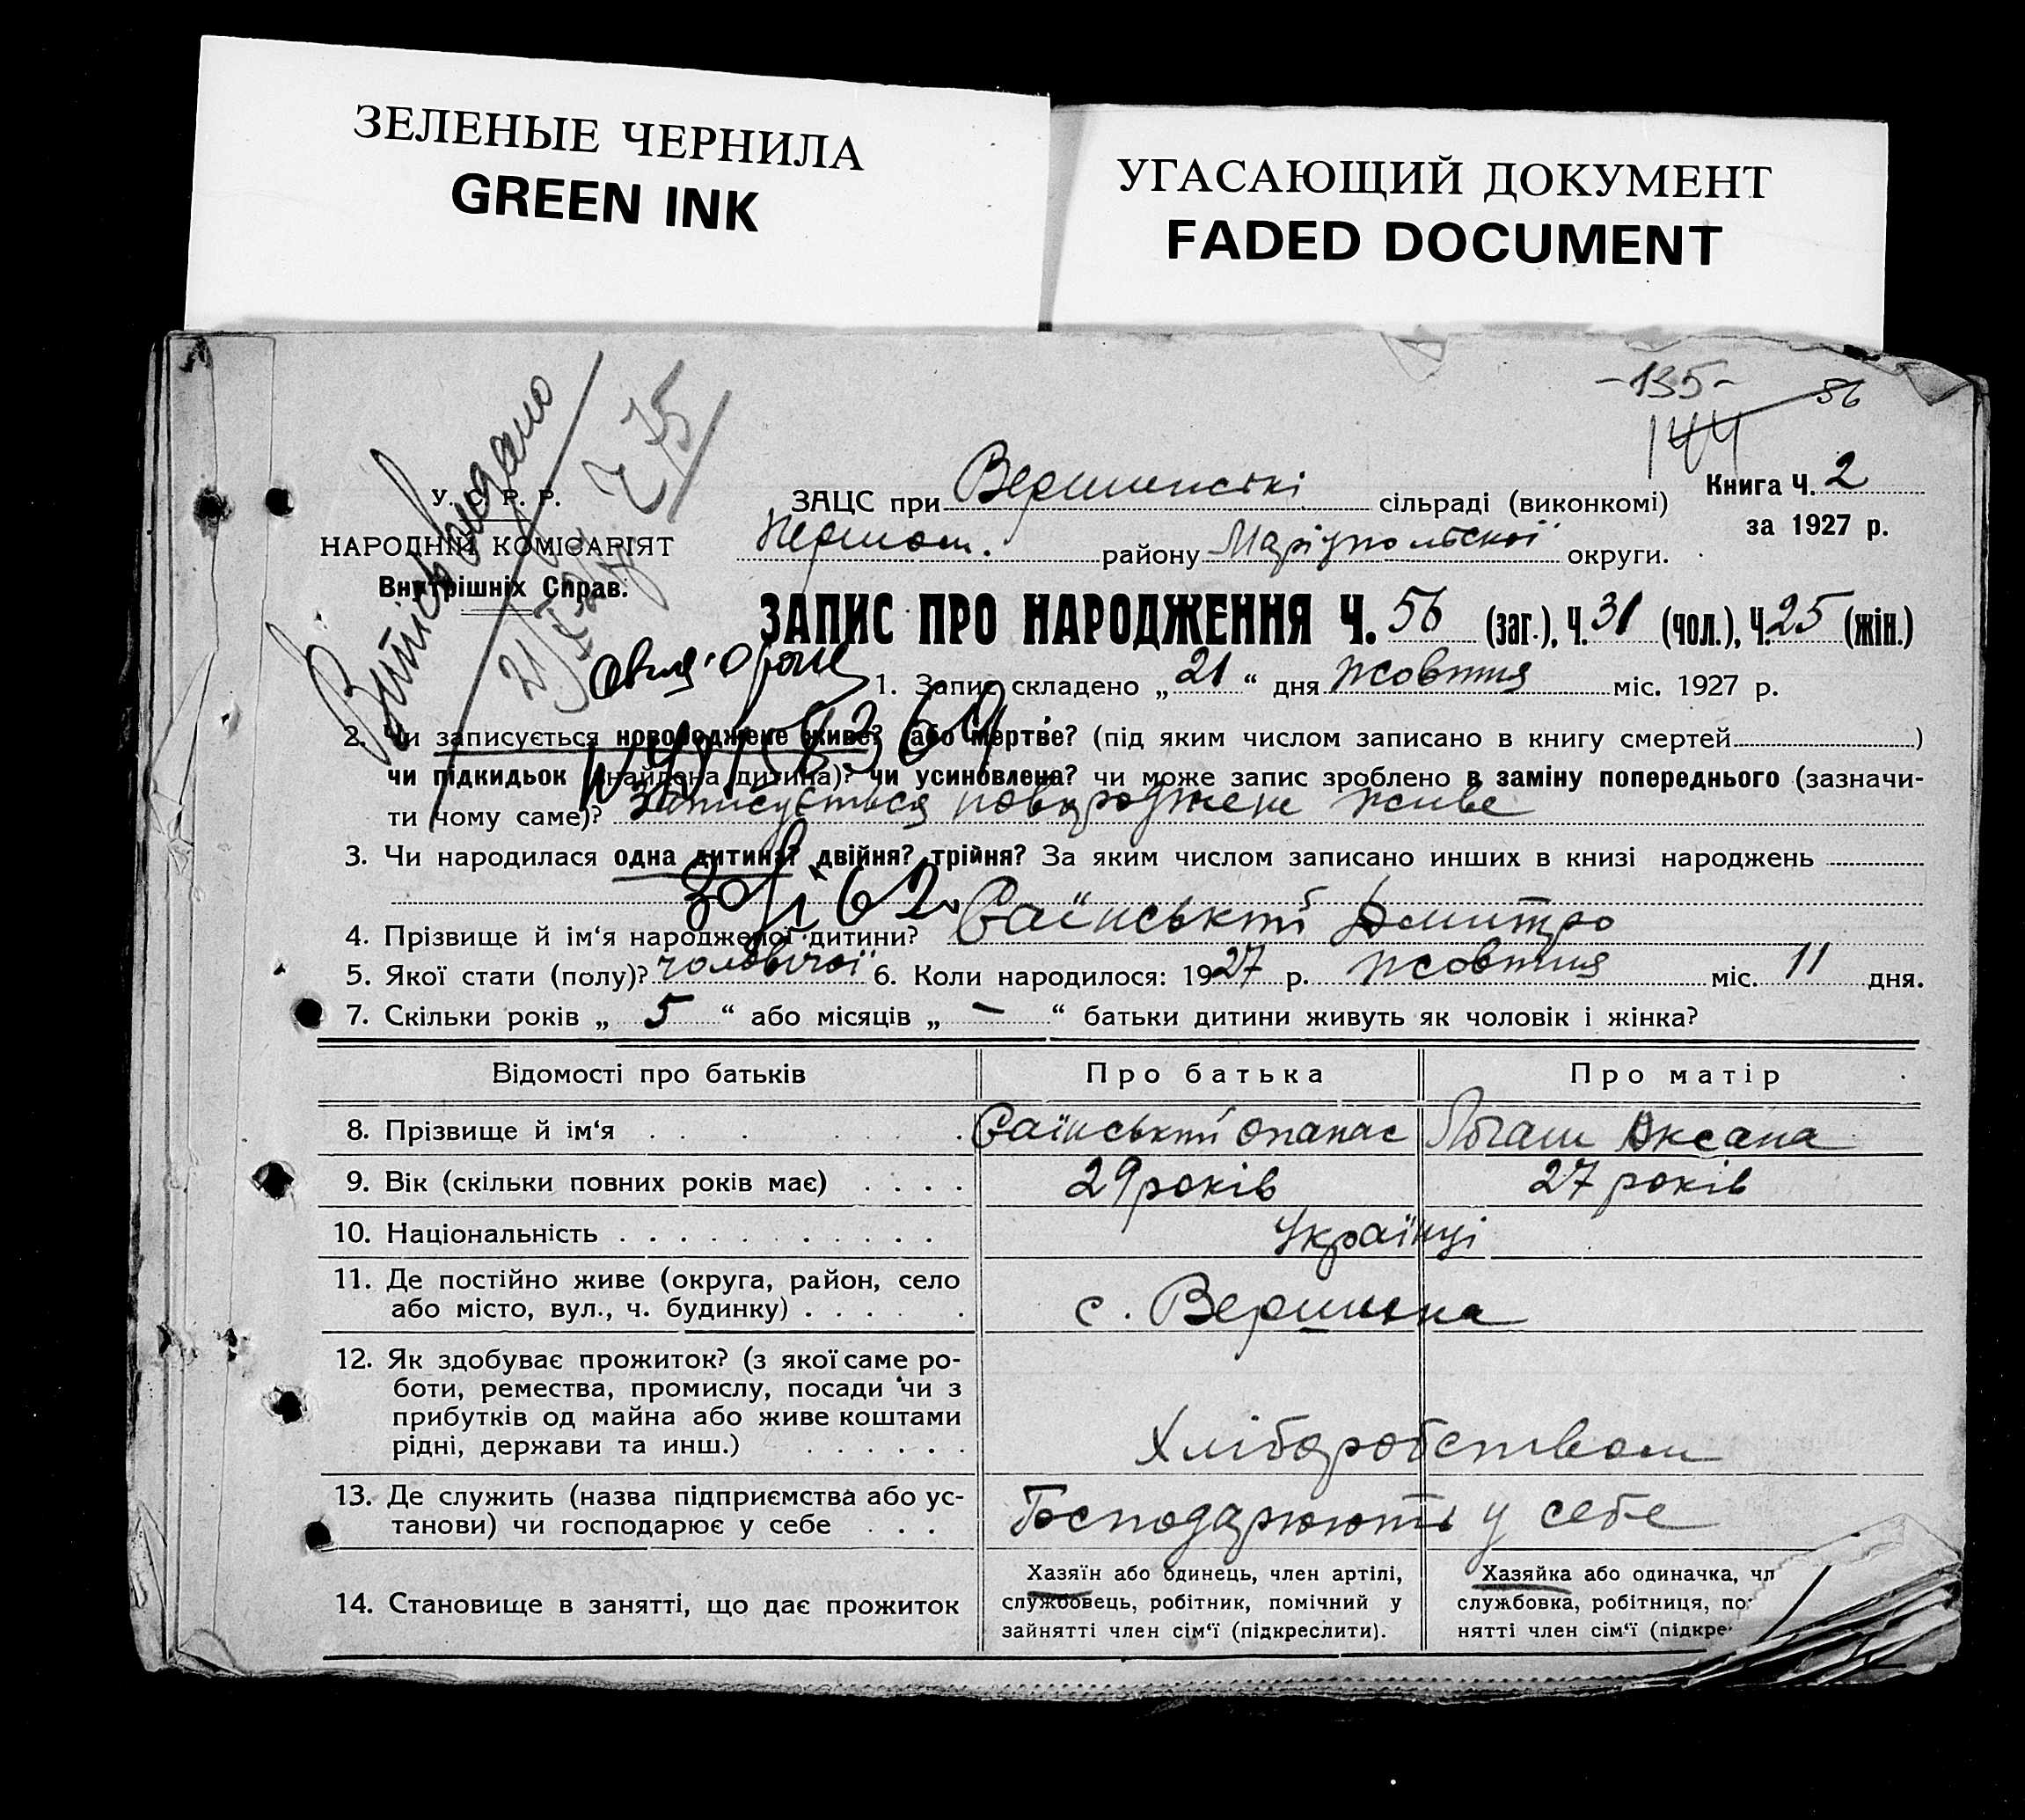 ЗЕЛЕНЫЕ ЧЕРНИЛА
GREEN INK
УГАСАЮЩИЙ ДОКУМЕНТ
FADED DOCUMENT
-135-
56
144
Витяг видано
У. С. Р. Р.
НАРОДНІЙ КОМІСАРІЯТ
Внутрішніх Справ.
ЗАЦС при Вершинскі сільраді (виконкомі)
Книга Ч. 2
за 1927 р.
Першот. району Маріупольскої округи.
ЗАПИС ПРО НАРОДЖЕННЯ Ч. 56 (заг.), Ч. 31 (чол.), Ч. 25 (жін.)
1. Запис складено „ 21 “ дня жовтня міс. 1927 р.
2. Чи записується новороджене живе? або мертве? (під яким числом записано в книгу смертей )
чи підкидьок (знайдена дитина)? чи усиновлена? чи може запис зроблено в заміну попереднього (зазначи-
ти чому саме)? Записується новороджене живе
3. Чи народилася одна дитина? двійня? трійня? За яким числом записано инших в книзі народжень
4. Прізвище й ім‘я народженої дитини? Саїнський Дмитро
5. Якої стати (полу)? чоловічої 6. Коли народилося: 1927 р. жовтня міс. 11 дня.
7. Скільки років „ 5 “ або місяців „ — “ батьки дитини живуть як чоловік і жінка?
Відомості про батьків
Про батька
Про матір
8. Прізвище й ім‘я
Саїнський Опанас
Оксана
9. Вік (скільки повних років має)
29 років
27 років
10. Національність
Українці
11. Де постійно живе (округа, район, село
або місто, вул., ч. будинку)
с. Вершина
12. Як здобуває прожиток? (з якої саме ро-
боти, ремества, промислу, посади чи з
прибутків од майна або живе коштами
рідні, держави та инш.)
Хліборобством
13. Де служить (назва підприємства або ус-
танови) чи господарює у себе
Господарюють у себе
14. Становище в занятті, що дає прожиток
Хазяїн або одинець, член артілі,
службовець, робітник, помічний у
зайнятті член сім‘ї (підкреслити).
Хазяйка або одиначка, чл
службовка, робітниця, по
нятті член сім‘ї (підкре